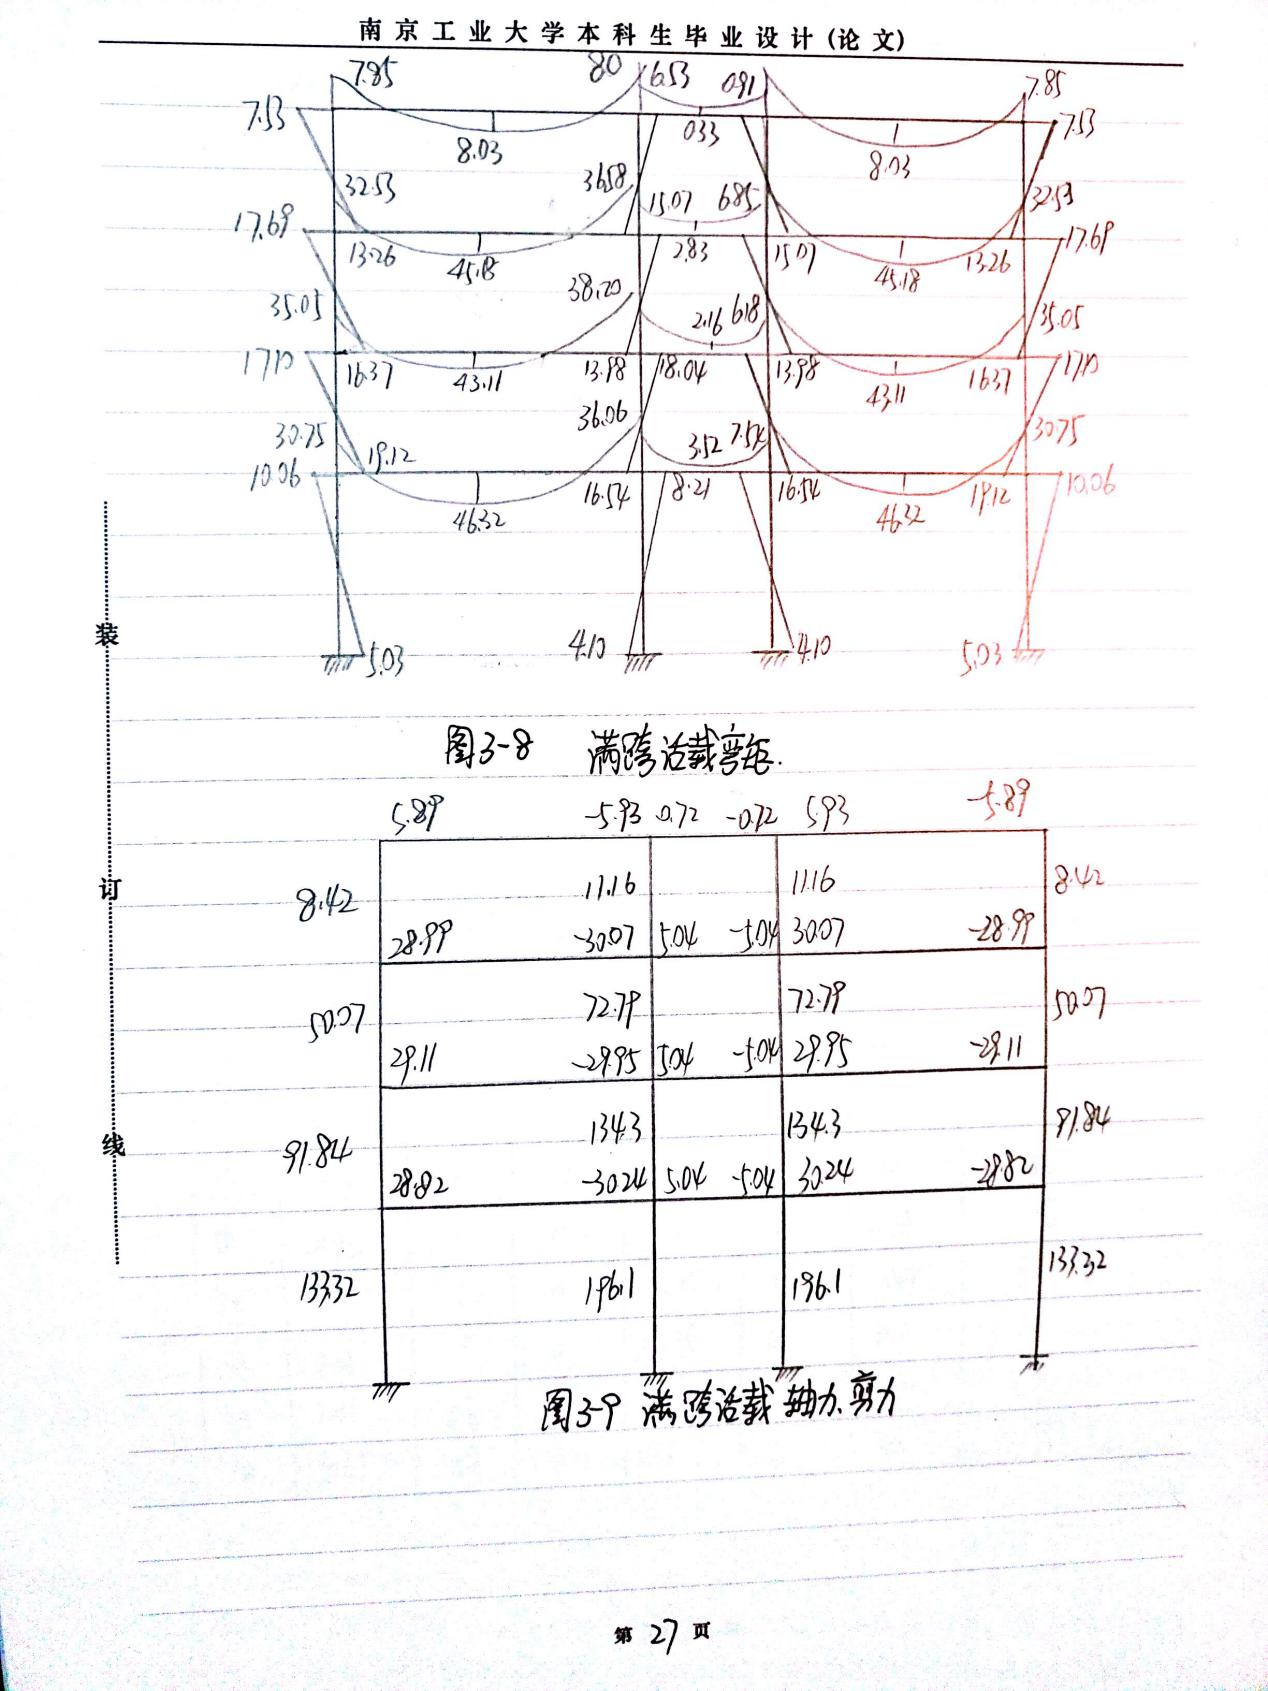 南京工业大学本科生毕业设计(论文)
7.85 80 6.53 0.91 7.85
7.53 7.53
8.03 0.33 8.03
32.53 36.58 15.07 6.85 32.53
17.69 17.69
13.26 45.18 2.83 15.07 45.18 13.26
35.05 38.20 2.16 6.18 35.05
16.37 43.11 13.98 18.04 13.98 43.11 16.37
30.75 36.06 3.52 7.54 30.75
10.06 19.12 10.06
46.32 16.54 8.21 16.54 46.32 19.12
5.03 4.10 4.10 5.03
图3-8 满跨活载弯矩.
5.89 -5.93 0.72 -0.72 5.93 -5.89
8.42 11.16 11.16 8.42
28.99 -30.07 5.04 -5.04 30.07 -28.99
50.07 72.79 72.79 50.07
29.11 -29.95 5.04 -5.04 29.95 -29.11
91.84 134.3 134.3 91.84
28.82 -30.24 5.04 -5.04 30.24 -28.82
133.32 196.1 196.1 133.32
图3-9 满跨活载 轴力、剪力
装
订
线
第 27 页